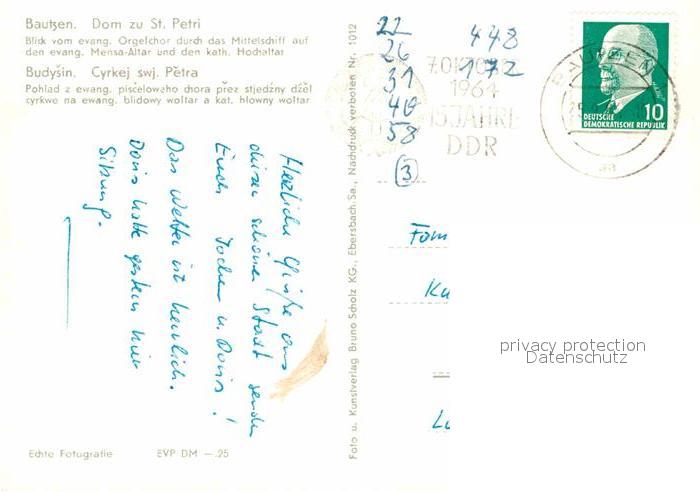 Bautzen. Dom zu St. Petri
Blick vom evang. Orgelchor durch das Mittelschiff auf
den evang. Mensa-Altar und den kath. Hochaltar
Budyšin. Cyrkej swj. Pětra
Pohlad z ewang. pisćeloweho chora přez stjedźny dźěl
cyrkwe na ewang. blidowy wołtar a kat. hłowny wołtar
Herzliche Grüße aus
dieser schönen Stadt senden
Euch Jochen u. Doris!
Das Wetter ist herrlich.
Doris hatte gestern hier
Sitzung.
Echte Fotografie EVP DM —.25
Foto u. Kunstverlag Bruno Scholz KG., Ebersbach/Sa., Nachdruck verboten Nr. 1012
22
26
31
40
58
(3)
448
172
7.OKTOBER
1964
15 JAHRE
DDR
BAUTZEN
aa
10
DEUTSCHE
DEMOKRATISCHE REPUBLIK
Fam
Ku
privacy protection
Datenschutz